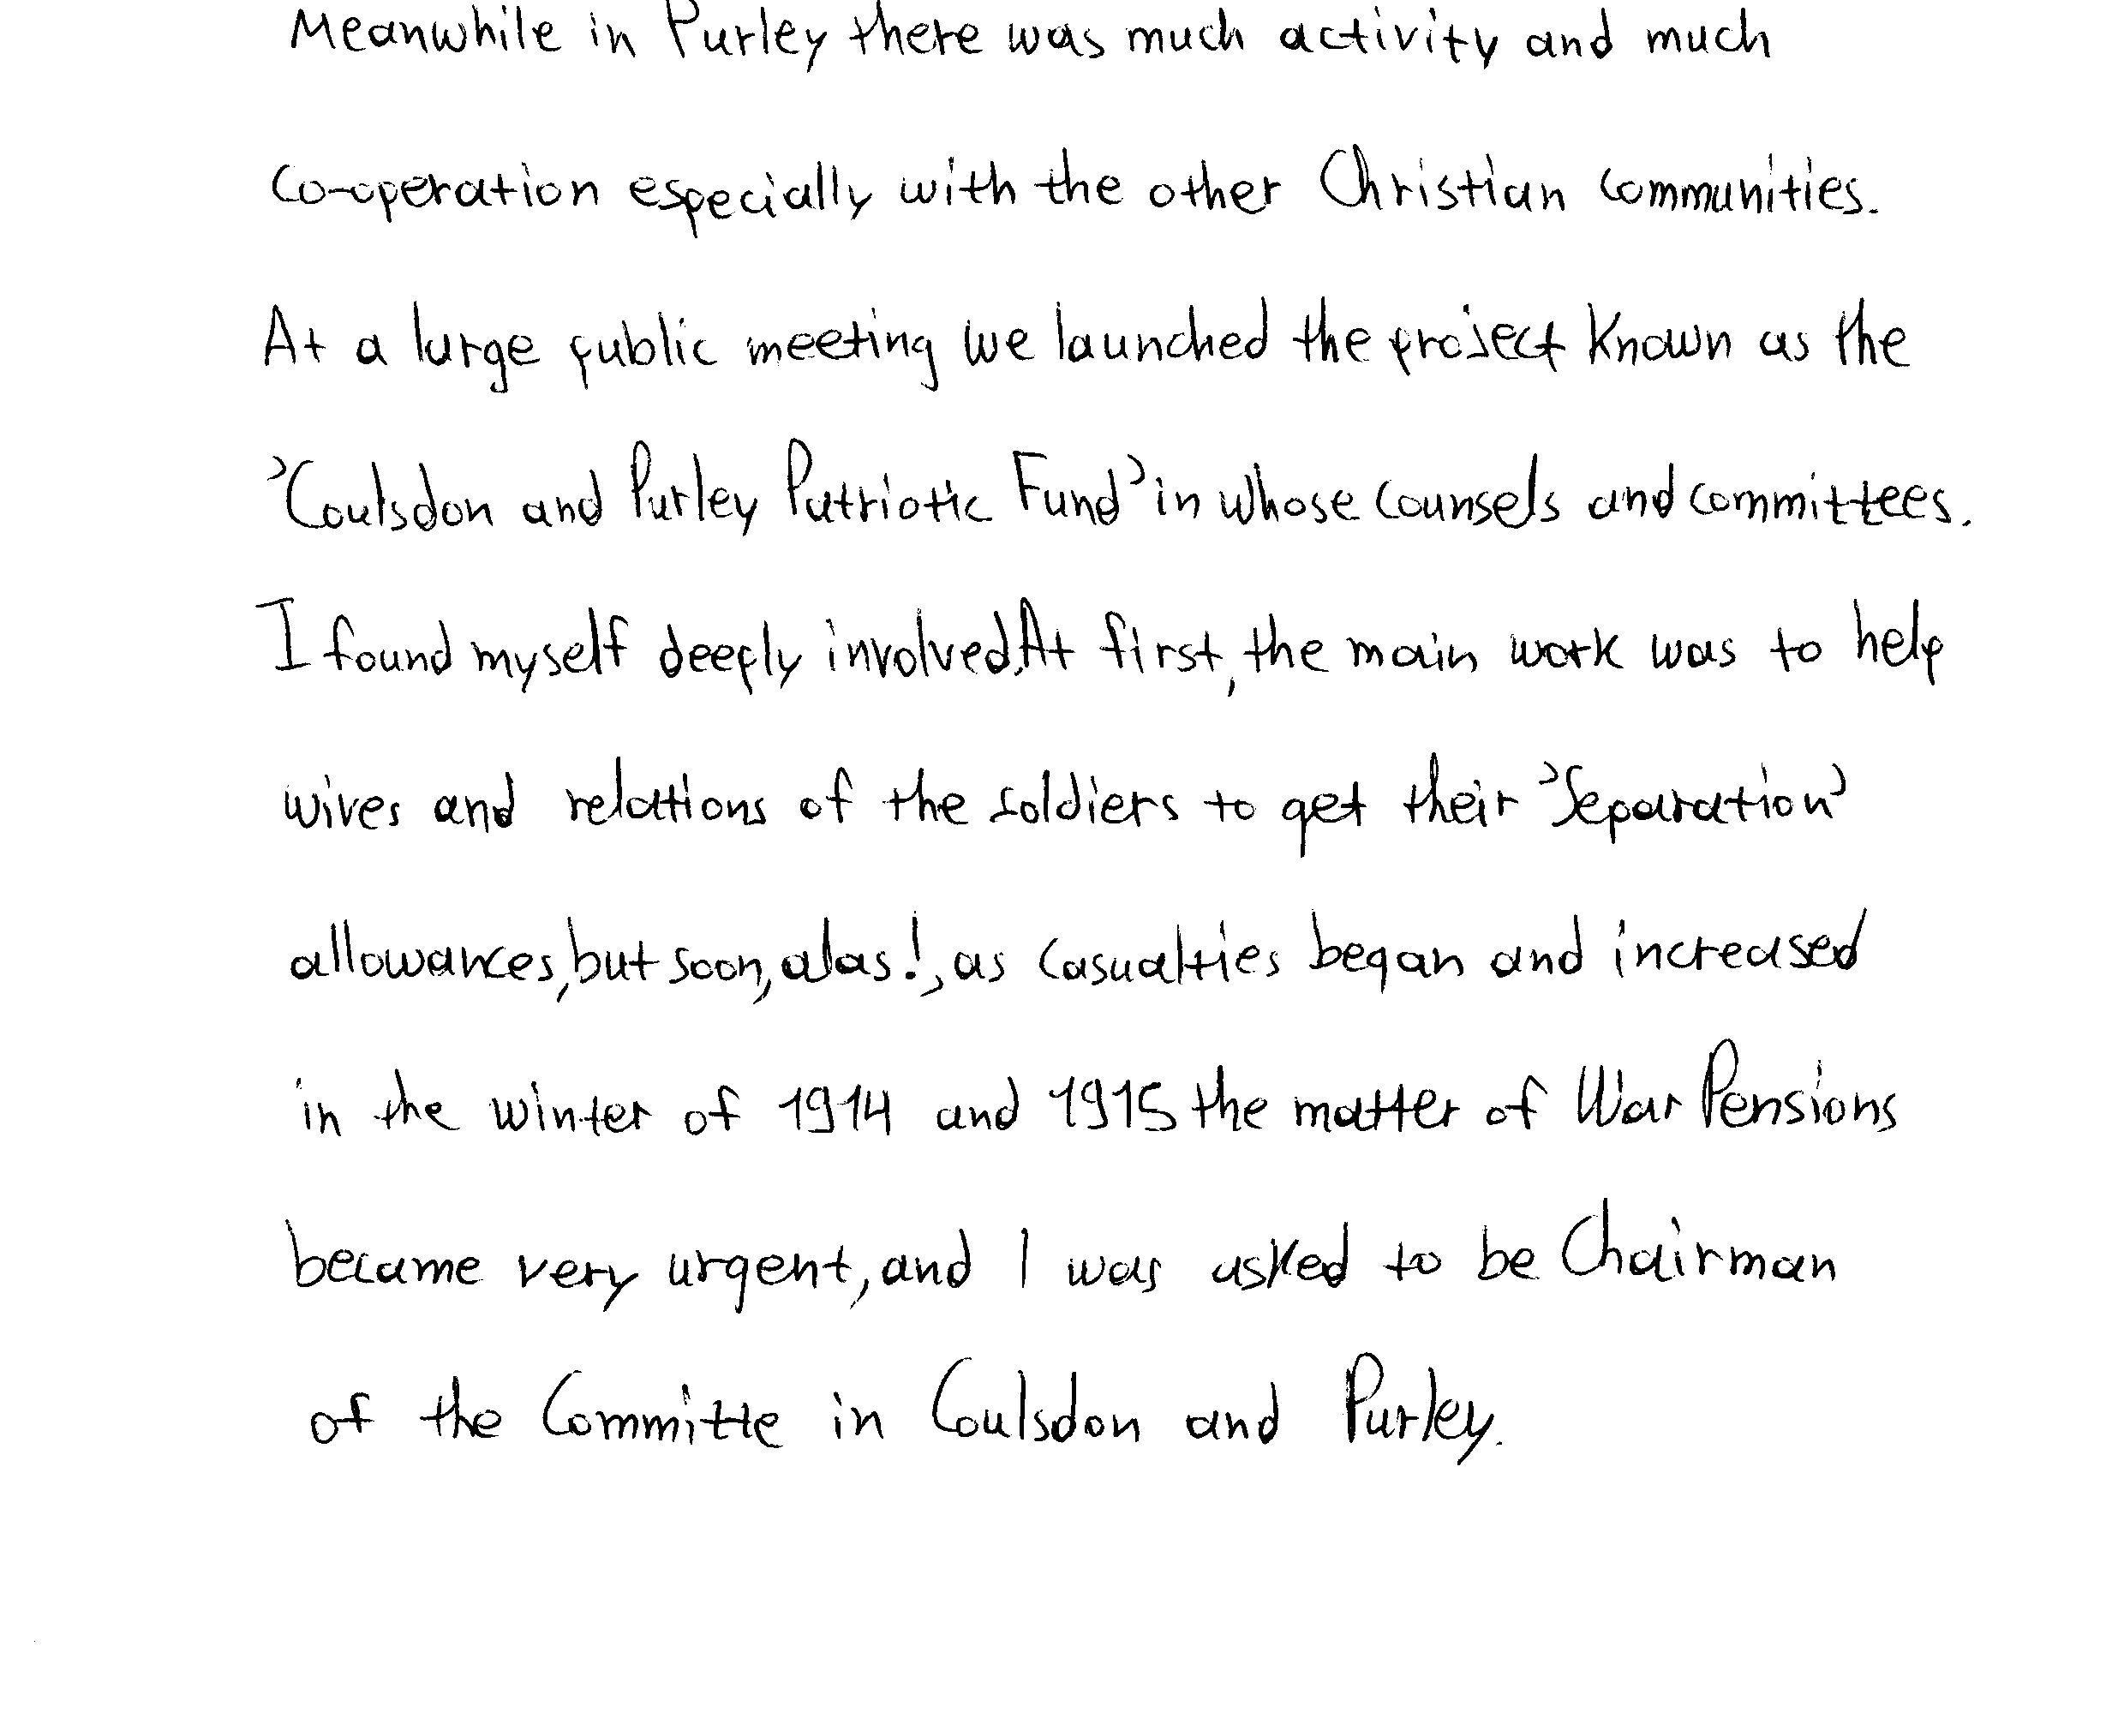 Meanwhile in Purley there was much activity and much
co-operation especially with the other Christian communities.
At a large public meeting we launched the project known as the
'Coulsdon and Purley Patriotic Fund' in whose counsels and committees.
I found myself deeply involved. At first, the main work was to help
wives and relations of the soldiers to get their 'Separation'
allowances, but soon, alas!, as casualties began and increased
in the winter of 1914 and 1915 the matter of War Pensions
became very urgent, and I was asked to be Chairman
of the Committe in Coulsdon and Purley.